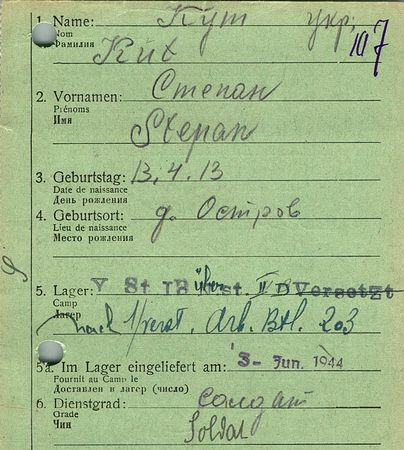 1. Name: Кут укр.
Nom 107
Фамилия Kux
2. Vornamen: Степан
Prénoms
Имя Stepan
3. Geburtstag: 13.4.13
Date de naissance
День рождения
4. Geburtsort: д. Остров
Lieu de naissance
Место рождения
5. Lager: V St IB über St. II D Versetzt
Camp
Лагерь
nach Arb. Btl. 203
5a. Im Lager eingeliefert am: 3- Jun. 1944
Fournit au Camp le
Доставлен в лагер (число)
6. Dienstgrad: солдат
Grade
Чин Soldat